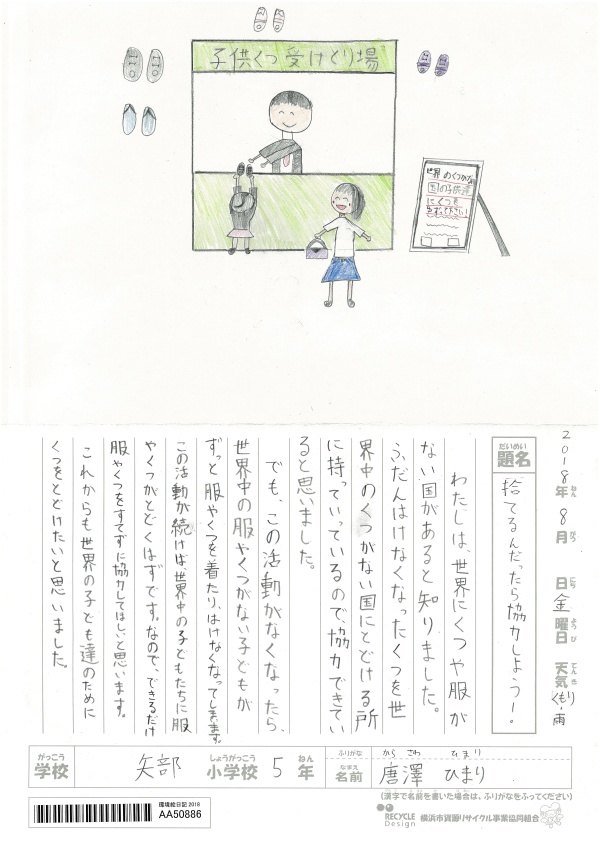 子供くつ受けとり場
世界のくつがない
国の子供達
にくつを
2018年ねん 8月がつ 日にち 金曜日ようび 天気てんき くもり・雨
だいめい
題名
捨てるんだったら協力しよう！。
わたしは、世界にくつや服が
ない国があると知りました。
ふだんはけなくなったくつを世
界中のくつがない国にとどける所
に持っていっているので、協力できてい
ると思いました。
でも、この活動がなくなったら、
世界中の服やくつがない子どもが
ずっと服やくつを着たり、はけなくなってしまいます。
この活動が続けば、世界中の子どもたちに服
やくつがとどくはずです。なので、できるだけ
服やくつをすてずに協力してほしいと思います。
これからも世界の子ども達のために
くつをとどけたいと思いました。
がっこう
学校
矢部
しょうがっこう
小学校
5
ねん
年
ふりがな
から さわ ひまり
なまえ
名前
唐澤 ひまり
(漢字で名前を書いた場合は、ふりがなをふってください)
環境絵日記 2018
AA50886
RECYCLE
Design
横浜市資源リサイクル事業協同組合